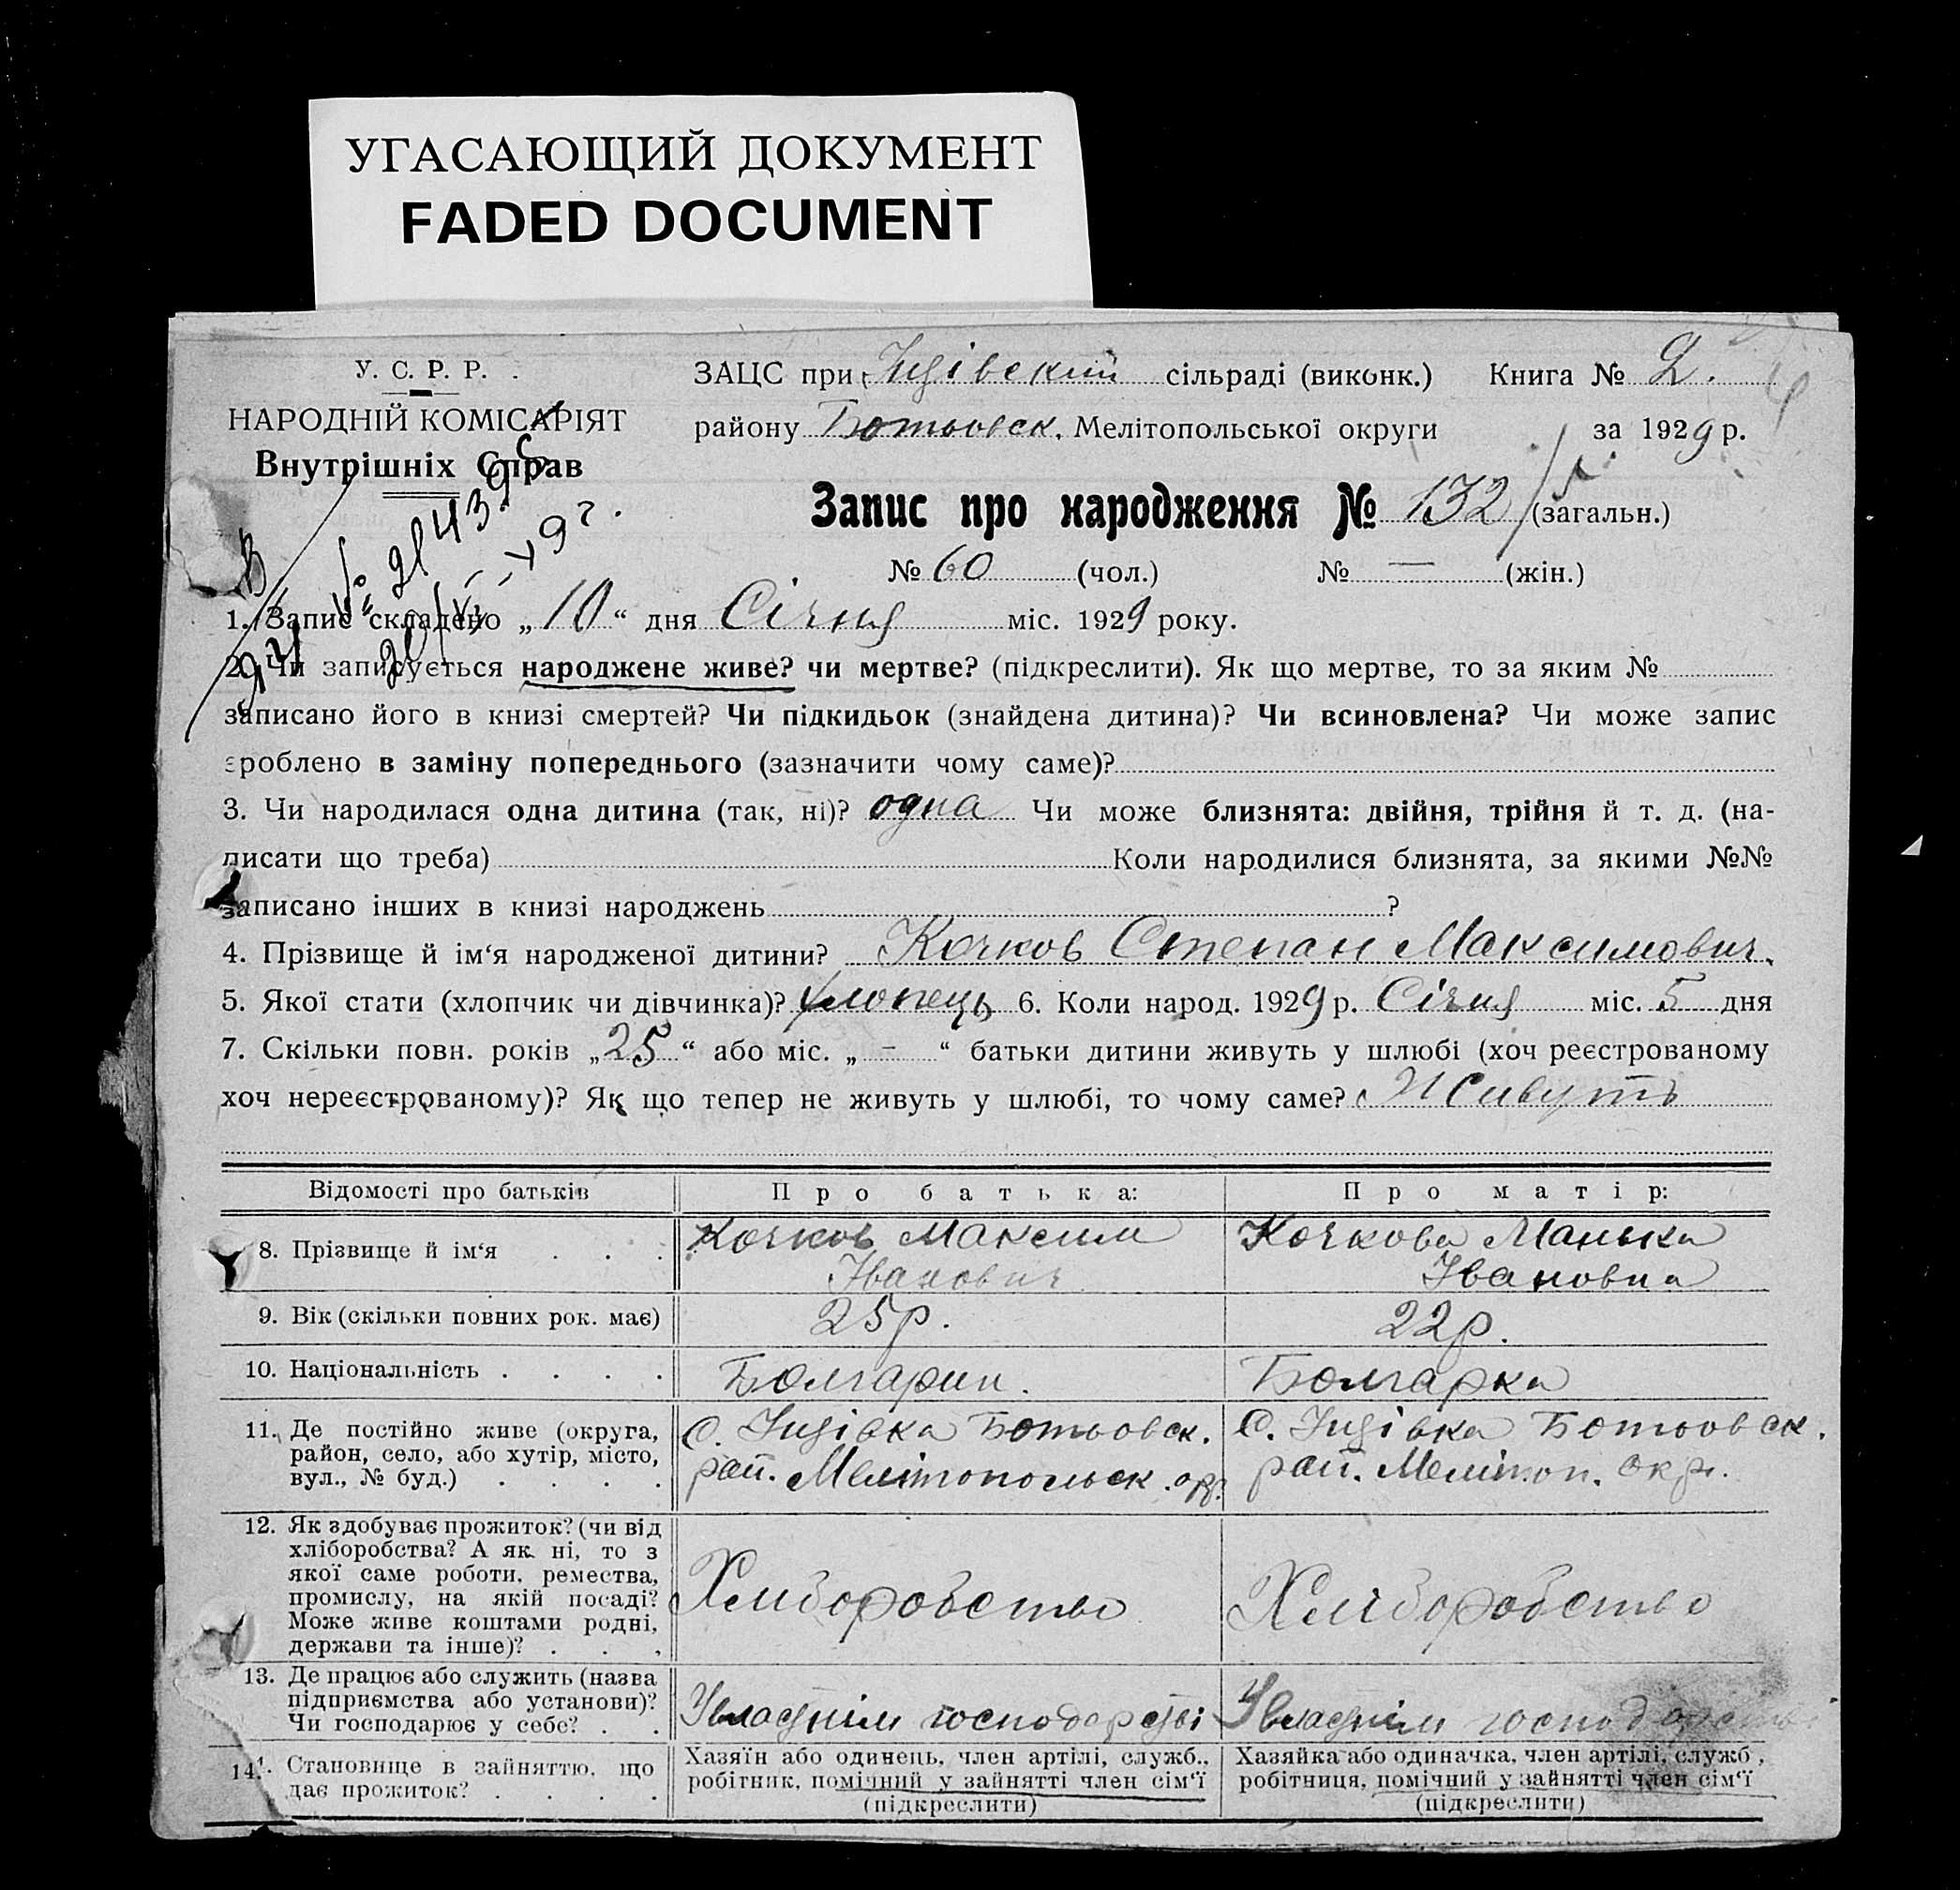 УГАСАЮЩИЙ ДОКУМЕНТ
FADED DOCUMENT
У. С. Р. Р.
НАРОДНІЙ КОМІСАРІЯТ
Внутрішніх Справ
ЗАЦС при Інзівский сільраді (виконк.) Книга № 2.
району Ботьовск. Мелітопольської округи за 1929 р.
Запис про народження № 132/5 (загальн.)
№ 60 (чол.) № — (жін.)
1. Запис складено „10“ дня Січня міс. 1929 року.
2. Чи записується народжене живе? чи мертве? (підкреслити). Як що мертве, то за яким №
записано його в книзі смертей? Чи підкидьок (знайдена дитина)? Чи всиновлена? Чи може запис
зроблено в заміну попереднього (зазначити чому саме)?
3. Чи народилася одна дитина (так, ні)? одна Чи може близнята: двійня, трійня й т. д. (на-
писати що треба) Коли народилися близнята, за якими №№
записано інших в книзі народжень ?
4. Прізвище й ім‘я народженої дитини? Кочков Степан Максимович.
5. Якої стати (хлопчик чи дівчинка)? хлопець 6. Коли народ. 1929 р. Січня міс. 5 дня
7. Скільки повн. років „25“ або міс. „ - “ батьки дитини живуть у шлюбі (хоч реєстрованому
хоч нереєстрованому)? Як що тепер не живуть у шлюбі, то чому саме? Живуть
Відомості про батьків Про батька: Про матір:
8. Прізвище й ім‘я . . . Кочков Максим Кочкова Манька
Іванович Івановна
9. Вік (скільки повних рок. має) 25р. 22р.
10. Національність . . . . Болгарин. Болгарка
11. Де постійно живе (округа, район, село, або хутір, місто, вул., № буд.) . . . .
С. Інзівка Ботьовск. рай. Мелітопольск. окр.
С. Інзівка Ботьовск. рай. Мелітоп. окр.
12. Як здобуває прожиток? (чи від
хліборобства? А як ні, то з
якої саме роботи, ремества,
промислу, на якій посаді?
Може живе коштами родні,
держави та інше)? . . .
Хлиборобство Хлиборобство
13. Де працює або служить (назва
підприємства або установи)?
Чи господарює у себе? . .
У власнім господарстві У власнім господарстві
14. Становище в зайняттю, що
дає прожиток? . . . .
Хазяїн або одинець, член артілі, служб.,
робітник, помічний у зайнятті член сім‘ї
(підкреслити)
Хазяйка або одиначка, член артілі, служб,
робітниця, помічний у зайнятті член сім‘ї
(підкреслити)